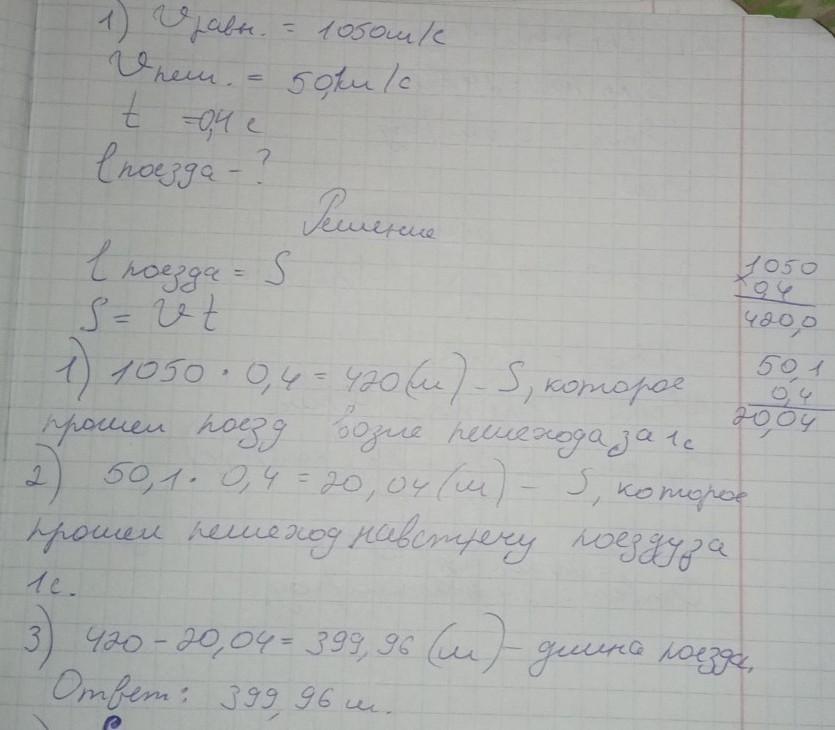 1) Vравн. = 1050м/с
Vпеш. = 50,1м/с
t = 0,4 с
l поезда - ?
Решение
l поезда = S
S = Vt
1) 1050 · 0,4 = 420 (м) - S, которое
прошел поезд возле пешехода за 1с
2) 50,1 · 0,4 = 20,04 (м) - S, которое
прошел пешеход навстречу поезду за
1с.
3) 420 - 20,04 = 399,96 (м) - длина поезда.
Ответ: 399,96 м.
1050
× 0,4
420,0
50,1
0,4
20,04